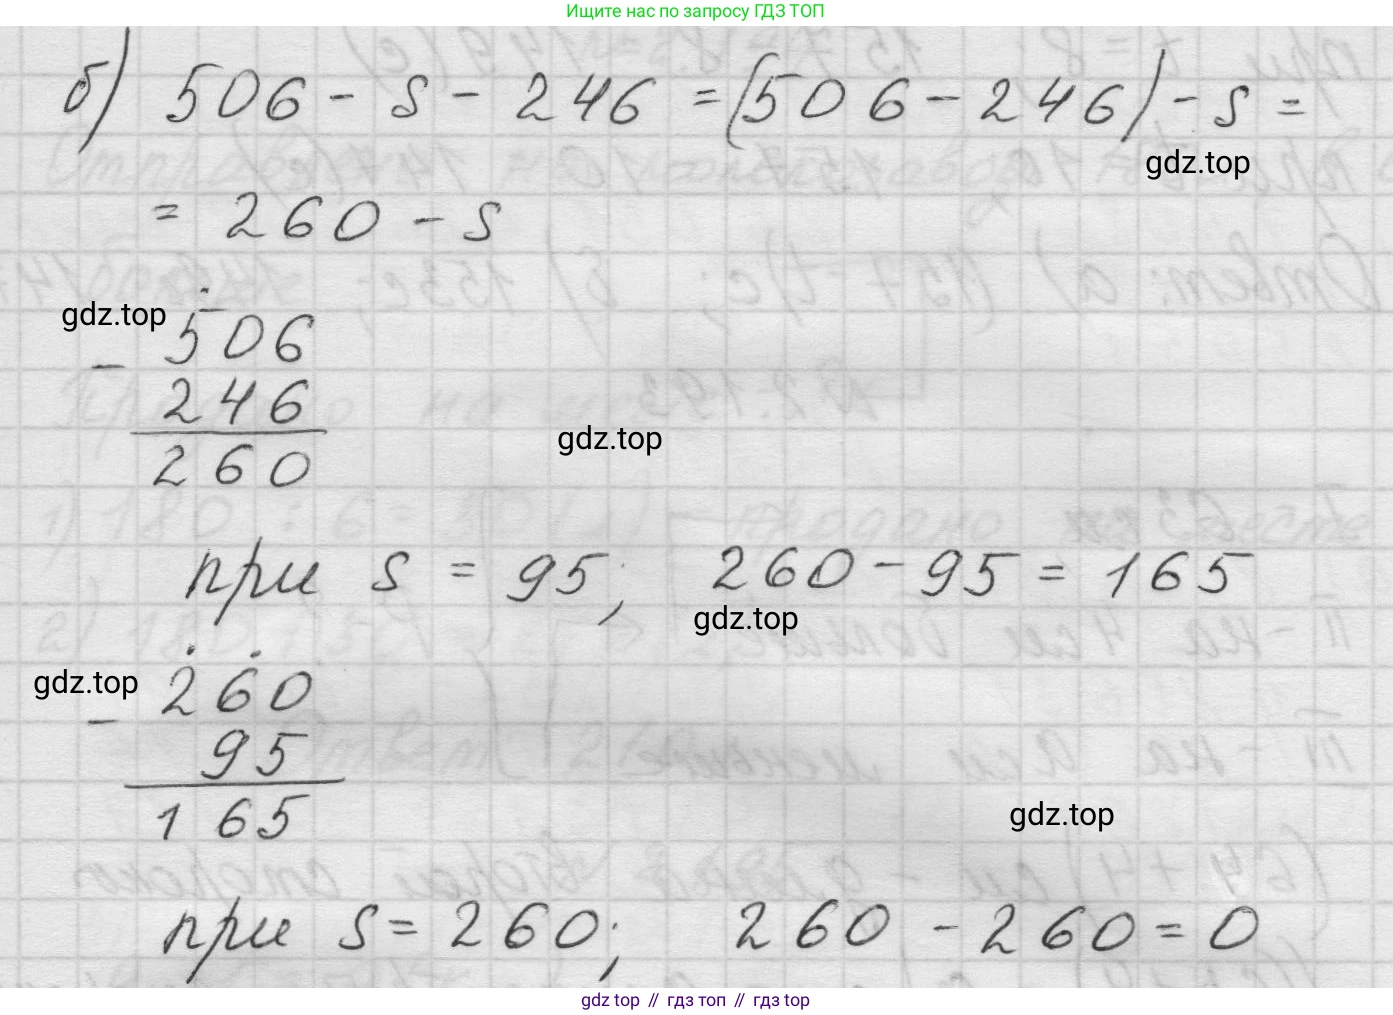 Ищите нас по запросу ГДЗ ТОП
б) 506 - s - 246 = (506 - 246) - s =
gdz.top
= 260 - s
gdz.top
506
-
246
260
gdz.top
при s = 95; 260 - 95 = 165
gdz.top
gdz.top
260
-
95
165
gdz.top
при s = 260; 260 - 260 = 0
gdz top // гдз топ // гдз top